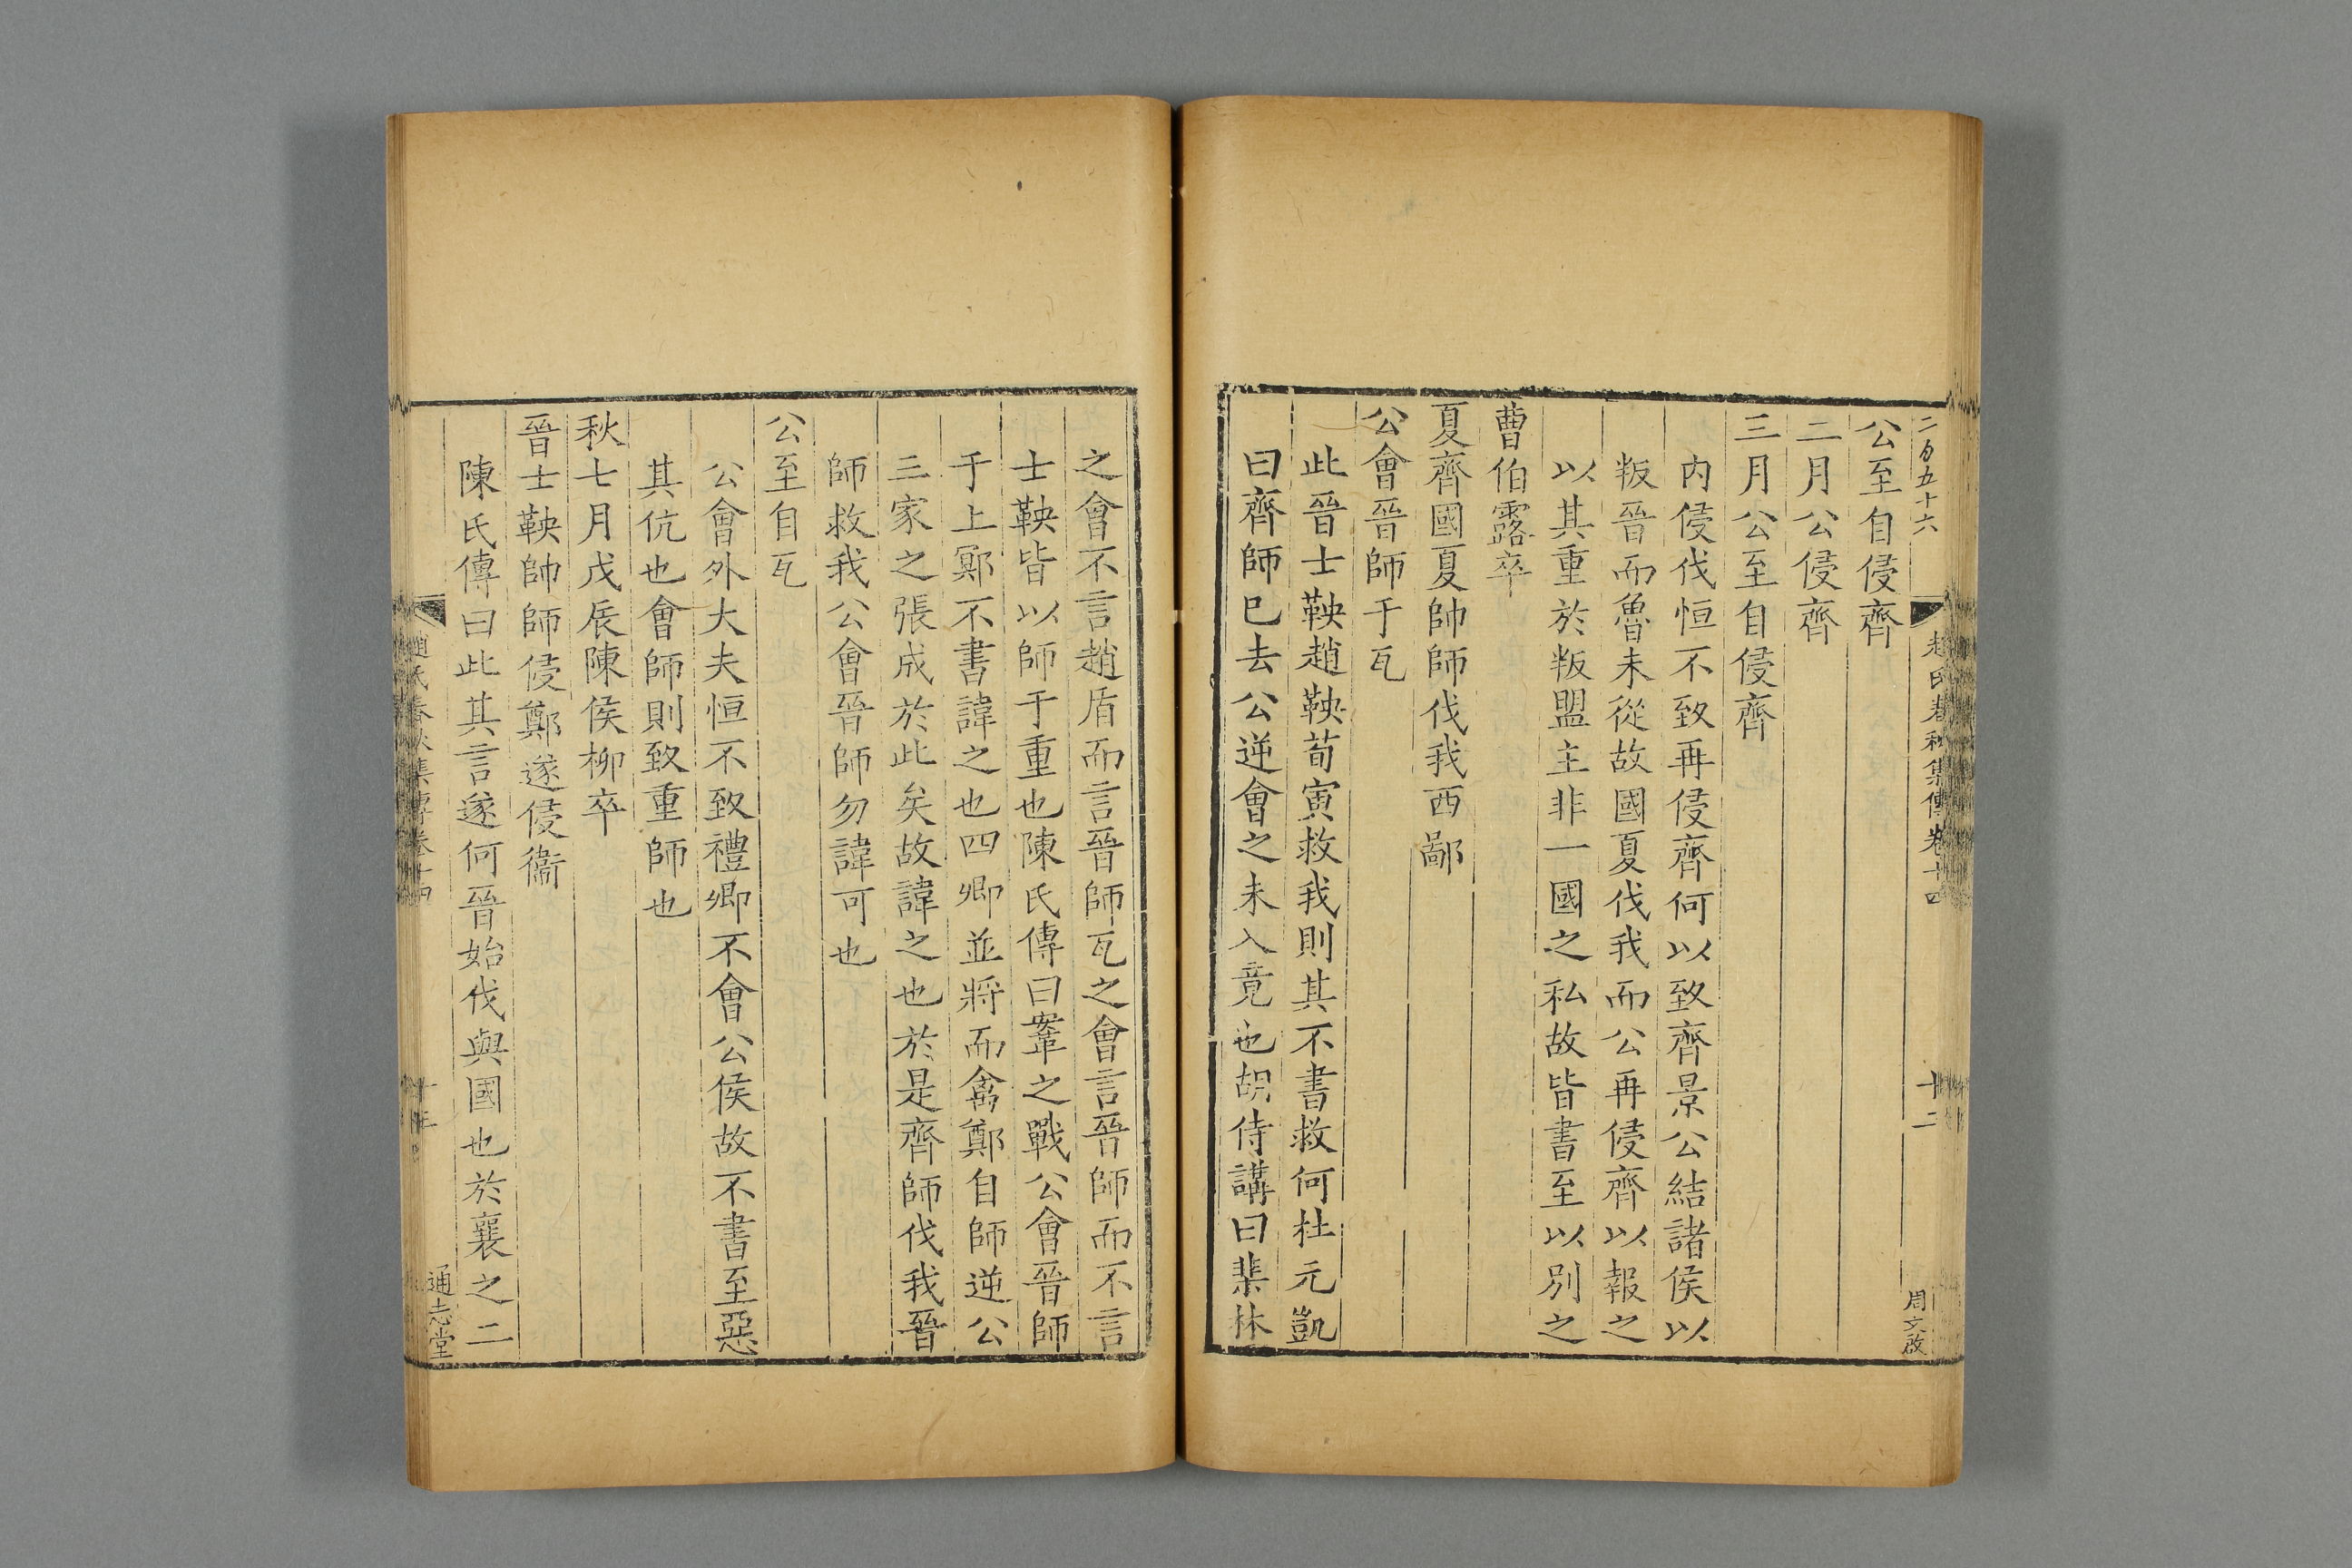 二百五十六
趙氏春秋集傳卷十四
十二
周文啟
公至自侵齊
二月公侵齊
三月公至自侵齊
内侵伐恒不致再侵齊何以致齊景公結諸侯以
叛晉而魯未從故國夏伐我而公再侵齊以報之
以其重於叛盟主非一國之私故皆書至以別之
曹伯露卒
夏齊國夏帥師伐我西鄙
公會晉師于瓦
此晉士鞅趙鞅荀寅救我則其不書救何杜元凱
曰齊師已去公逆會之未入竟也胡侍講曰棐林
之會不言趙盾而言晉師瓦之會言晉師而不言
士鞅皆以師于重也陳氏傳曰鞌之戰公會晉師
于上鄍不書諱之也四卿並將而禽鄭自師逆公
三家之張成於此矣故諱之也於是齊師伐我晉
師救我公會晉師勿諱可也
公至自瓦
公會外大夫恒不致禮卿不會公侯故不書至惡
其伉也會師則致重師也
秋七月戊辰陳侯柳卒
晉士鞅帥師侵鄭遂侵衞
陳氏傳曰此其言遂何晉始伐與國也於襄之二
趙氏春秋集傳卷十四
通志堂